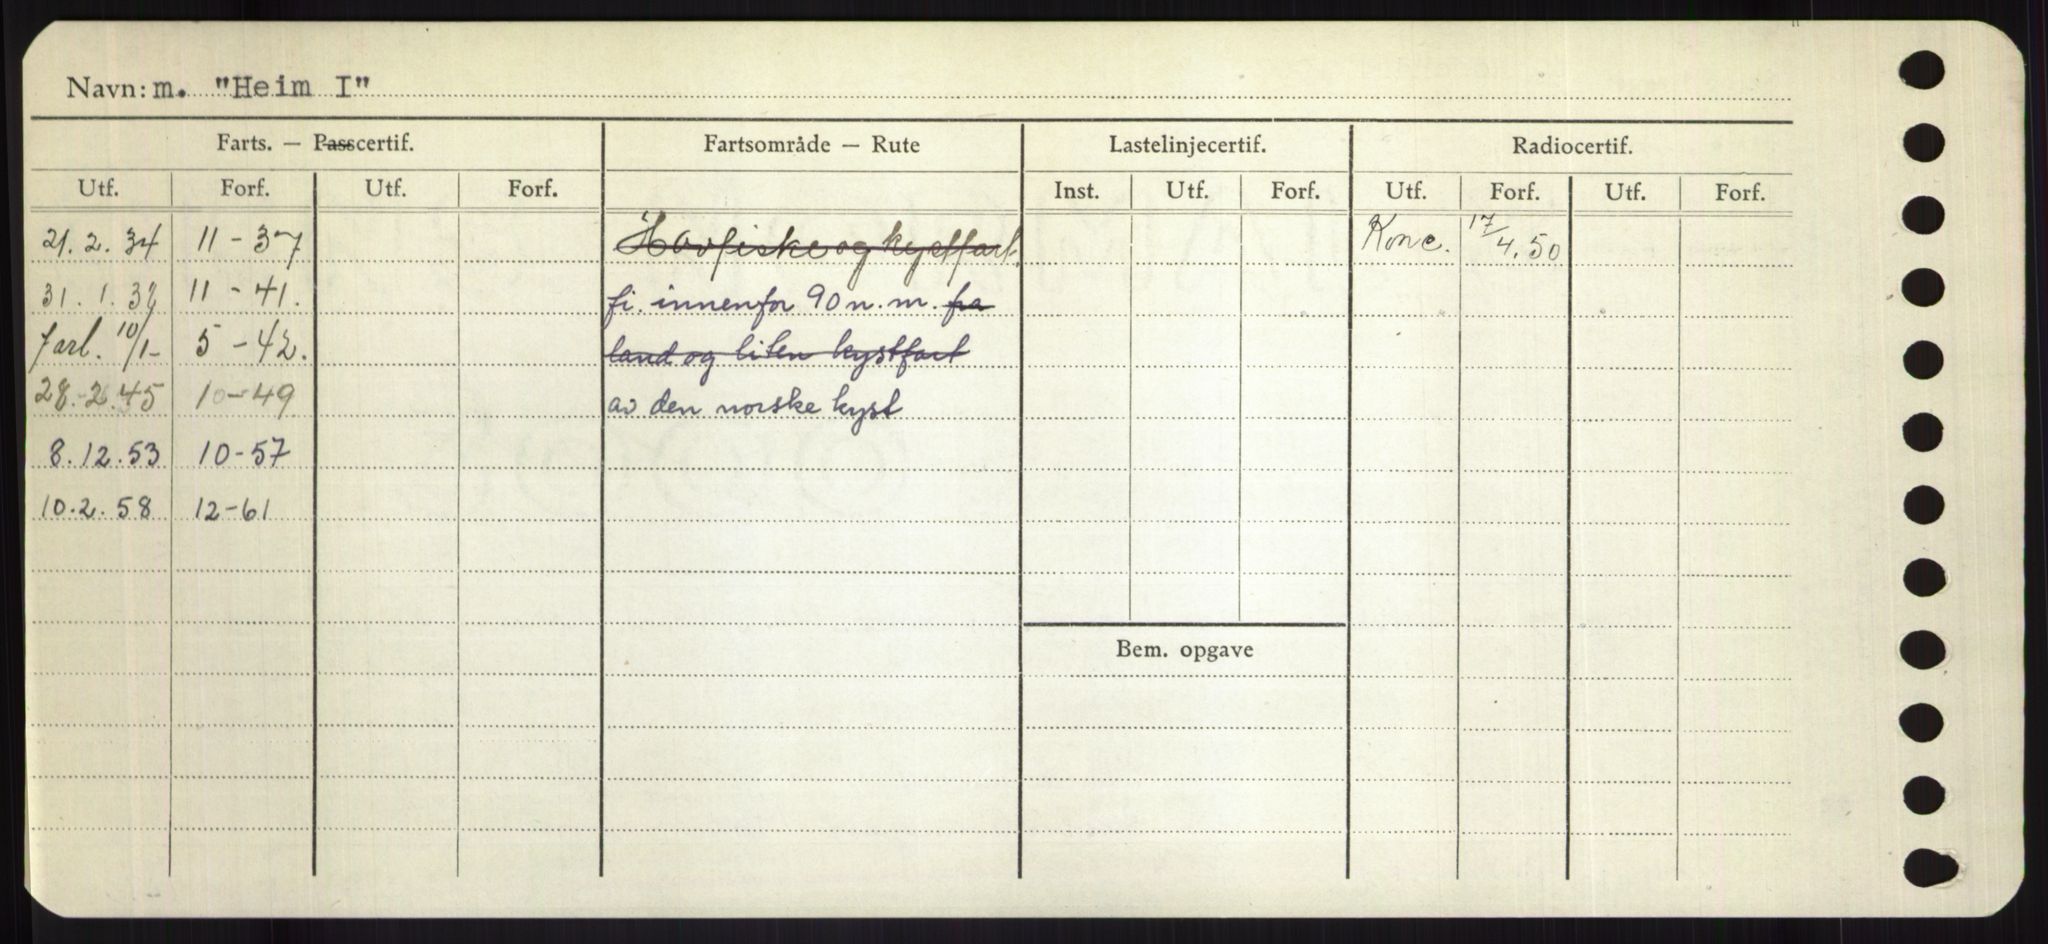 Navn: m. "Heim I"
Farts. — Passcertif. Fartsområde — Rute Lastelinjecertif. Radiocertif.
Utf. Forf. Utf. Forf. Inst. Utf. Forf. Utf. Forf. Utf. Forf.
21.2.34 11-37 Havfiske og kystfart. Konc. 17/4.50
31.1.38 11-41. fi. innenfor 90 n.m. fra
forl. 10/1- 5-42. land og liten kystfart
28.2.45 10-49 av den norske kyst
8.12.53 10-57
10.2.58 12-61
Bem. opgave